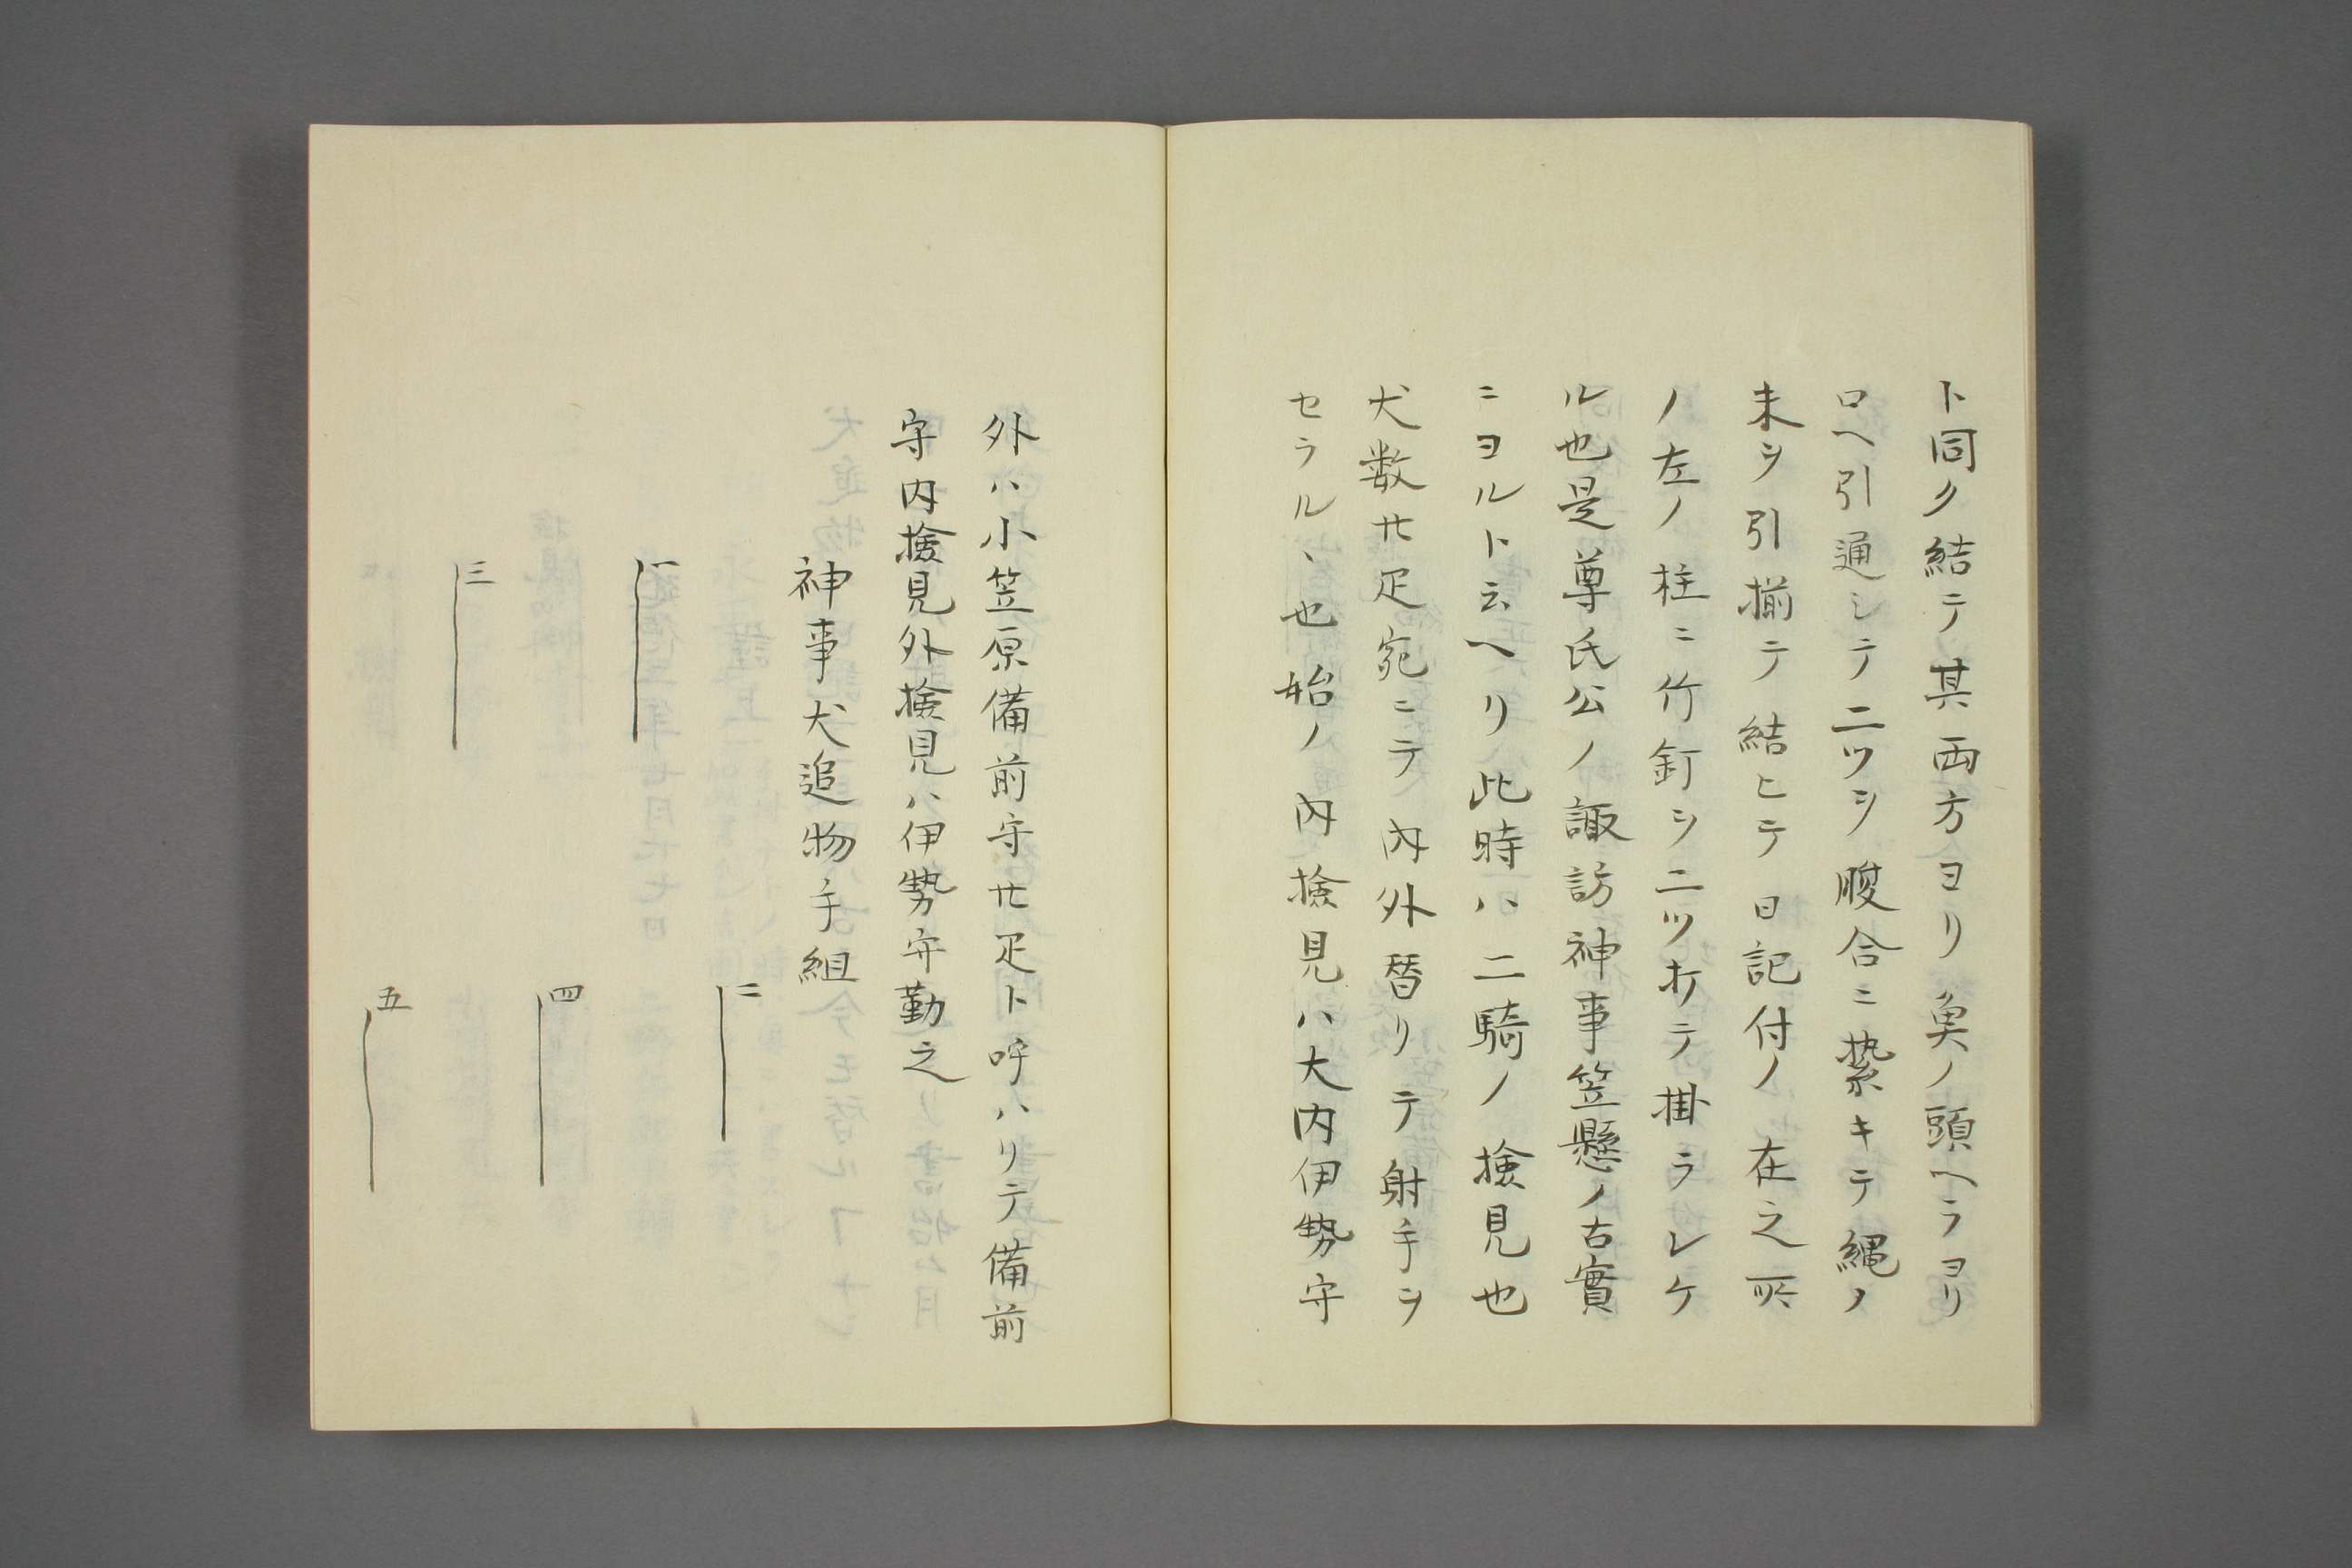 ト同ク結テ其両方ヨリ魚ノ頭ヘラヨリ
ロヘ引通シテ二ツヲ腹合ニ繋キテ縄ノ
末ヲ引揃テ結ヒテ日記付ノ在之所
ノ左ノ柱ニ竹釘ヲ二ツ打テ掛ラレケ
ル也是尊氏公ノ諏訪神事笠懸ノ古實
ニヨルト云ヘリ此時ハ二騎ノ検見也
犬数廿疋宛ニテ内外替リテ射手ヲ
セラルヽ也始ノ内検見ハ大内伊勢守
外ハ小笠原備前守廿疋ト呼ハリテ備前
守内検見外検見ハ伊勢守勤之
神事犬追物手組
一
二
三
四
五